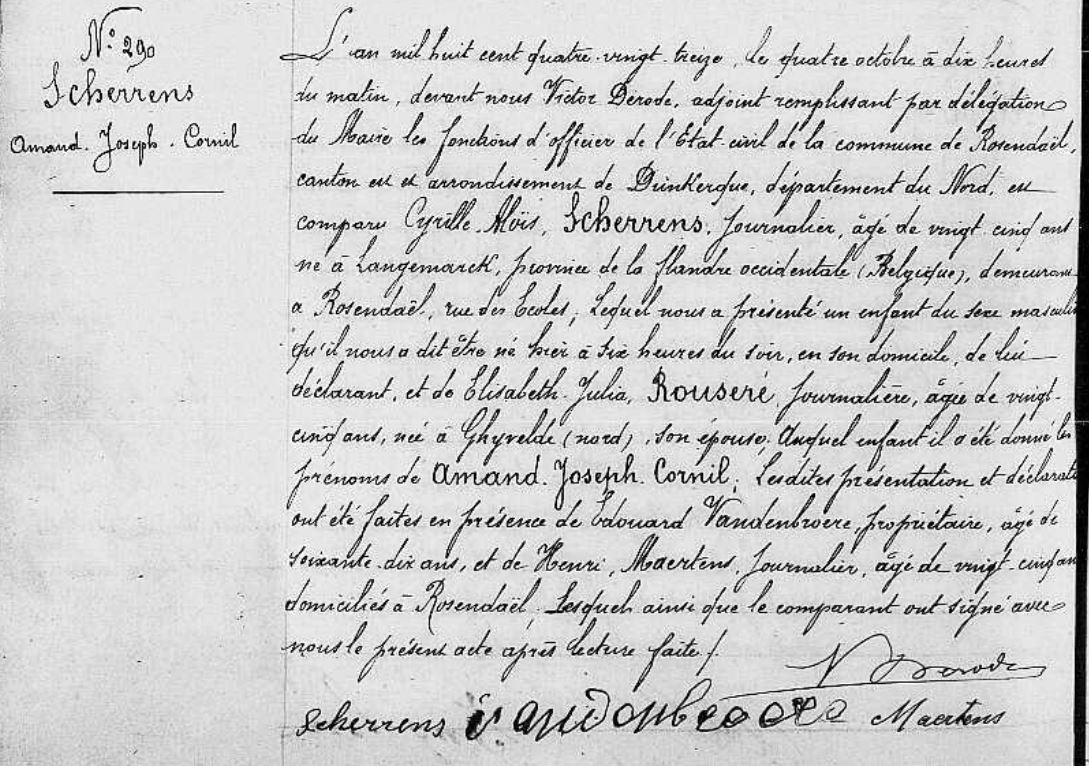 N° 290
Scherrens
Amand. Joseph. Cornil
L'an mil huit cent quatre-vingt-treize, le quatre octobre à dix heures
du matin, devant nous Victor Derode, adjoint remplissant par délégation
du Maire les fonctions d'officier de l'Etat-civil de la commune de Rosendaël,
canton est et arrondissement de Dunkerque, département du Nord, est
comparu Cyrille Aloïs, Scherrens, Journalier, âgé de vingt-cinq ans
né à Langemarck, province de la flandre occidentale (Belgique), demeurant
à Rosendaël, rue des Ecoles; Lequel nous a présenté un enfant du sexe masculin
qu'il nous a dit être né hier à six heures du soir, en son domicile, de lui
déclarant, et de Elisabeth-Julia, Rouseré, Journalière, âgée de vingt-
cinq ans, née à Ghyvelde (nord), son épouse; Auquel enfant il a été donné les
prénoms de Amand. Joseph. Cornil; Lesdites présentation et déclarati
ont été faites en présence de Edouard Vandenbroere, propriétaire, âgé de
soixante-dix ans, et de Henri, Maertens, Journalier, âgé de vingt-cinq ans
domiciliés à Rosendaël; Lesquels ainsi que le comparant ont signé avec
nous le présent acte après lecture faite./.
V Derode
Scherrens Maertens